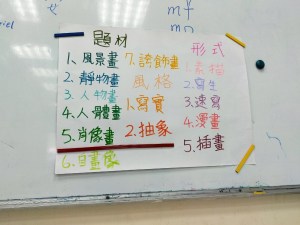 題材
1、風景畫
2、靜物畫
3、人物畫
4、人體畫
5、肖像畫
6、自畫像
7、誇飾畫
風格
1、寫實
2、抽象
形式
1、素描
2、寫生
3、速寫
4、漫畫
5、插畫